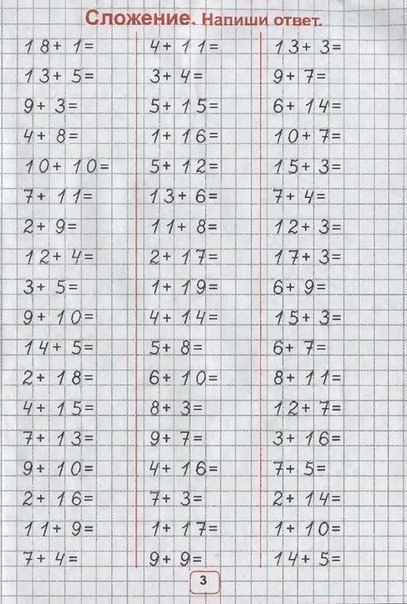 Сложение. Напиши ответ.
18+ 1= 4+ 11= 13+ 3=
13+ 5= 3+ 4= 9+ 7=
9+ 3= 5+ 15= 6+ 14=
4+ 8= 1+ 16= 10+ 7=
10+ 10= 5+ 12= 15+ 3=
7+ 11= 13+ 6= 7+ 4=
2+ 9= 11+ 8= 12+ 3=
12+ 4= 2+ 17= 17+ 3=
3+ 5= 1+ 19= 6+ 9=
9+ 10= 4+ 14= 15+ 3=
14+ 5= 5+ 8= 6+ 7=
2+ 18= 6+ 10= 8+ 11=
4+ 15= 8+ 3= 12+ 7=
7+ 13= 9+ 7= 3+ 16=
9+ 10= 4+ 16= 7+ 5=
2+ 16= 7+ 3= 2+ 14=
11+ 9= 1+ 17= 1+ 10=
7+ 4= 9+ 9= 14+ 5=
3